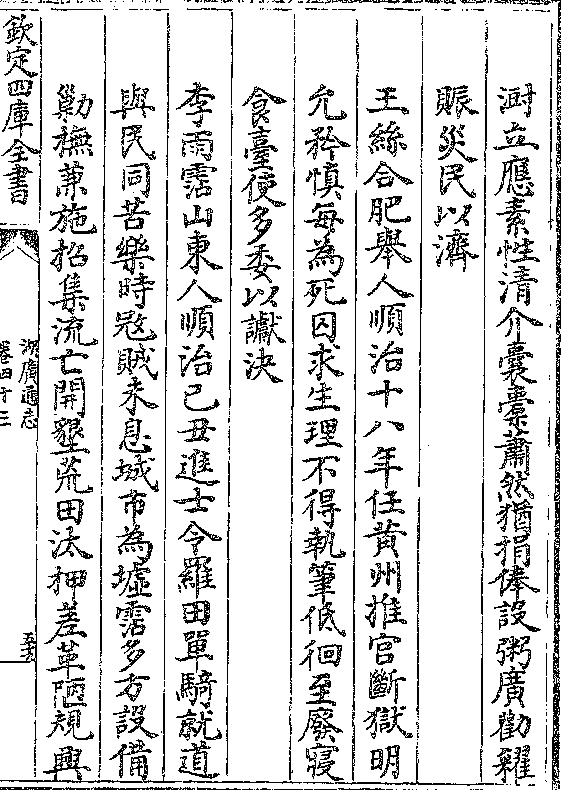 澍立應素性清介囊橐蕭然猶捐俸設粥廣勸糴
賑災民以濟
王絲合肥舉人順治十八年任黃州推官斷獄明
允矜慎每為死囚求生理不得執筆低徊至廢寢
食臺使多委以讞決
李雨霑山東人順治己丑進士令羅田單騎就道
與民同苦樂時逖賊未息城市為墟霑多方設備
勦撫兼施招集流亡開墾荒田汰押差革陋規興
欽定四庫全書
湖廣通志
卷四十三